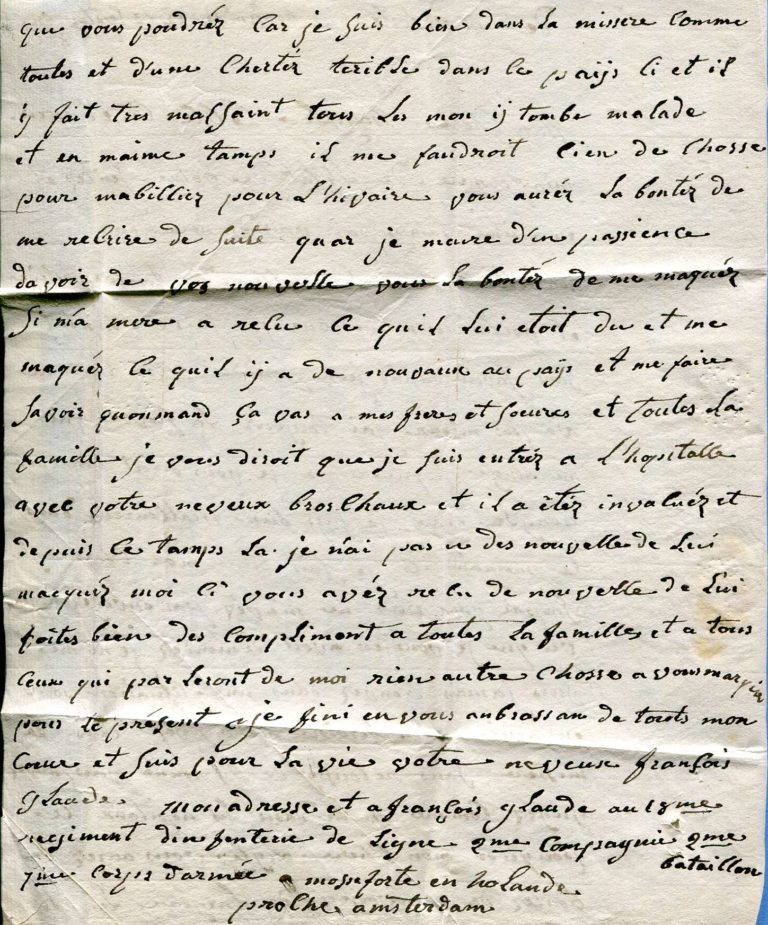 que vous poudréz Car je suis bien dans la missere Comme
toutes et d'une Chertéz terible dans le paÿs Ci et il
ÿ fait tres malsaint tous Les mon ÿ tombe malade
et en maime tamps il me faudroit bien de Chosse
pour mabilliez pour L'hivaire vous auréz La bontéz de
me recrire de suite quar je meure d'in passience
davoir de vos nouvelle vous La bontéz de me maquéz
Si ma mere a recu Ce quil Lui etoit du et me
maquéz Ce quil ÿ a de nouvaux au paÿs et me faire
savoir quonmand ça vas a mes freres et soeures et toutes La
famille je vous diroit que je suis entréz a L'hopitalle
avec votre neveux broschaux et il a étéz invaluéz et
depuis Ce tamps La je n'ai pas u des nouvelle de Lui
macquéz moi Ci vous avéz recu de nouvelle de Lui
foites bien des Compliment a toutes La familles et a tous
Ceux qui parleront de moi rien autre Chosse a vous marquer
pour le présent je fini en vous anbrassan de touts mon
Coeur et suis pour La vie votre neveux françois
glaude mon adresse et a françois glaude au 18me
regiment dinfenterie de Ligne 2me Compagnie 2me
bataillon
7me Corps d'armée a mosseforte en holande
proche amsterdam